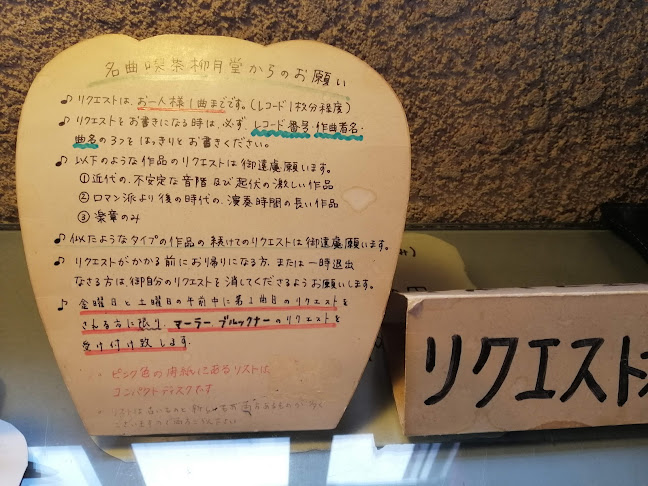 名曲喫茶柳月堂からのお願い
♪ リクエストは、お一人様1曲までです。(レコード1枚分程度)
♪ リクエストをお書きになる時は、必ず、レコード番号・作曲者名・
曲名の3つをはっきりとお書きください。
♪ 以下のような作品のリクエストは御遠慮願います。
①近代の、不安定な音階及び起伏の激しい作品
②ロマン派より後の時代の、演奏時間の長い作品
③楽章のみ
♪ 似たようなタイプの作品の続けてのリクエストは御遠慮願います。
♪ リクエストがかかる前にお帰りになる方、または一時退出
なさる方は、御自分のリクエストを消してくださるようお願いします。
♪ 金曜日と土曜日の午前中に第1曲目のリクエストを
される方に限り、マーラー、ブルックナーのリクエストを
受け付け致します。
ピンク色の用紙にあるリストは、
コンパクトディスクです
リクエスト